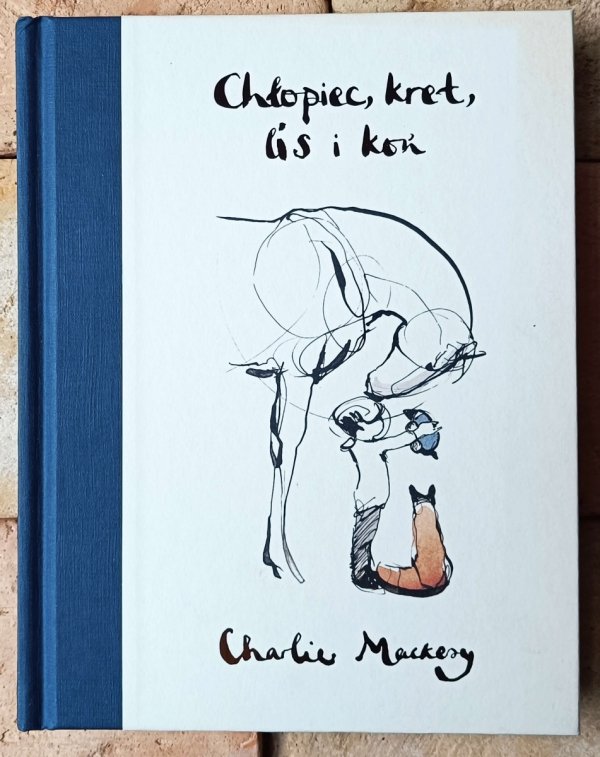 Chłopiec, kret,
lis i koń
Charlie Mackesy